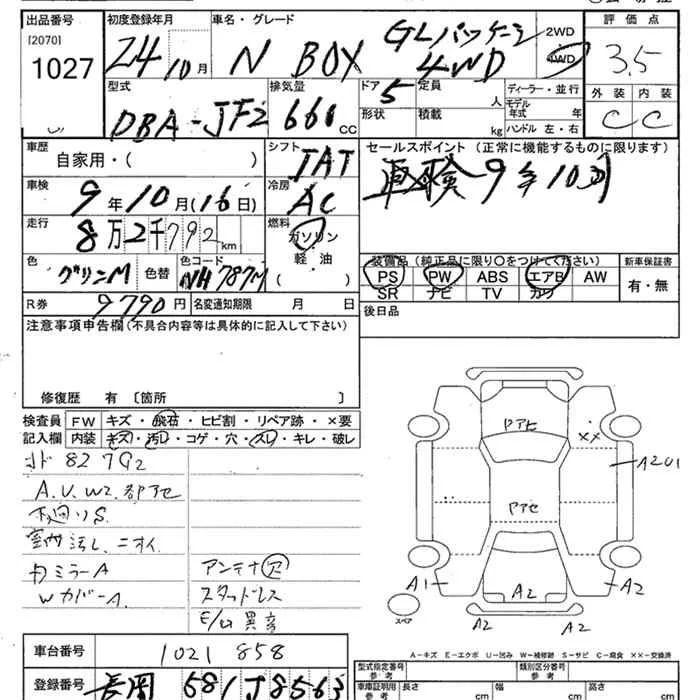 出品番号 初度登録年月 車名・グレード 評価点
[2070]
1027
24 10月 N BOX GLパッケージ 4WD 2WD 4WD 3.5
型式 排気量 ドア 定員 ディーラー・並行 外装 内装
DBA-JF2 660 CC 5 人 モデル年式 年 C C
形状 積載 kg ハンドル 左・右
車歴 シフト セールスポイント (正常に機能するものに限ります)
自家用・( ) IAT
車検 9年10月(16日) 冷房 AC 車検9年10月
走行 8万2千792km 燃料 ガソリン 軽油 ( )
色 色替 色コード NH787M
装備品 (純正品に限り○をつけてください) 新車保証書
PS PW ABS エアB AW 有・無
SR ナビ TV カワ
R券 9790円 名変通知期限 月 日 後日品
注意事項申告欄 (不具合内容等は具体的に記入して下さい)
修復歴 有 〔箇所 〕
検査員 FW キズ・飛石・ヒビ割・リペア跡・×要
記入欄 内装 キズ・汚レ・コゲ・穴・スレ・キレ・破レ
82792
A.U.W2.部アセ
下廻りS
室内汚レ.ニオイ
カミラーA アンテナ欠
WカバーA. スタッドレス
E/G異音
ドアセ
×× A2U1
ドアセ
A1 A2 A2
スペア A2 A2
A-キズ E-エクボ U-凹み W-補修跡 S-サビ C-腐食 ××-交換済
車台番号 1021858
型式指定番号 参考 類別区分番号 参考
登録番号 長岡 581 J8563
車庫証明用 参考 長さ cm 幅 cm 高さ cm